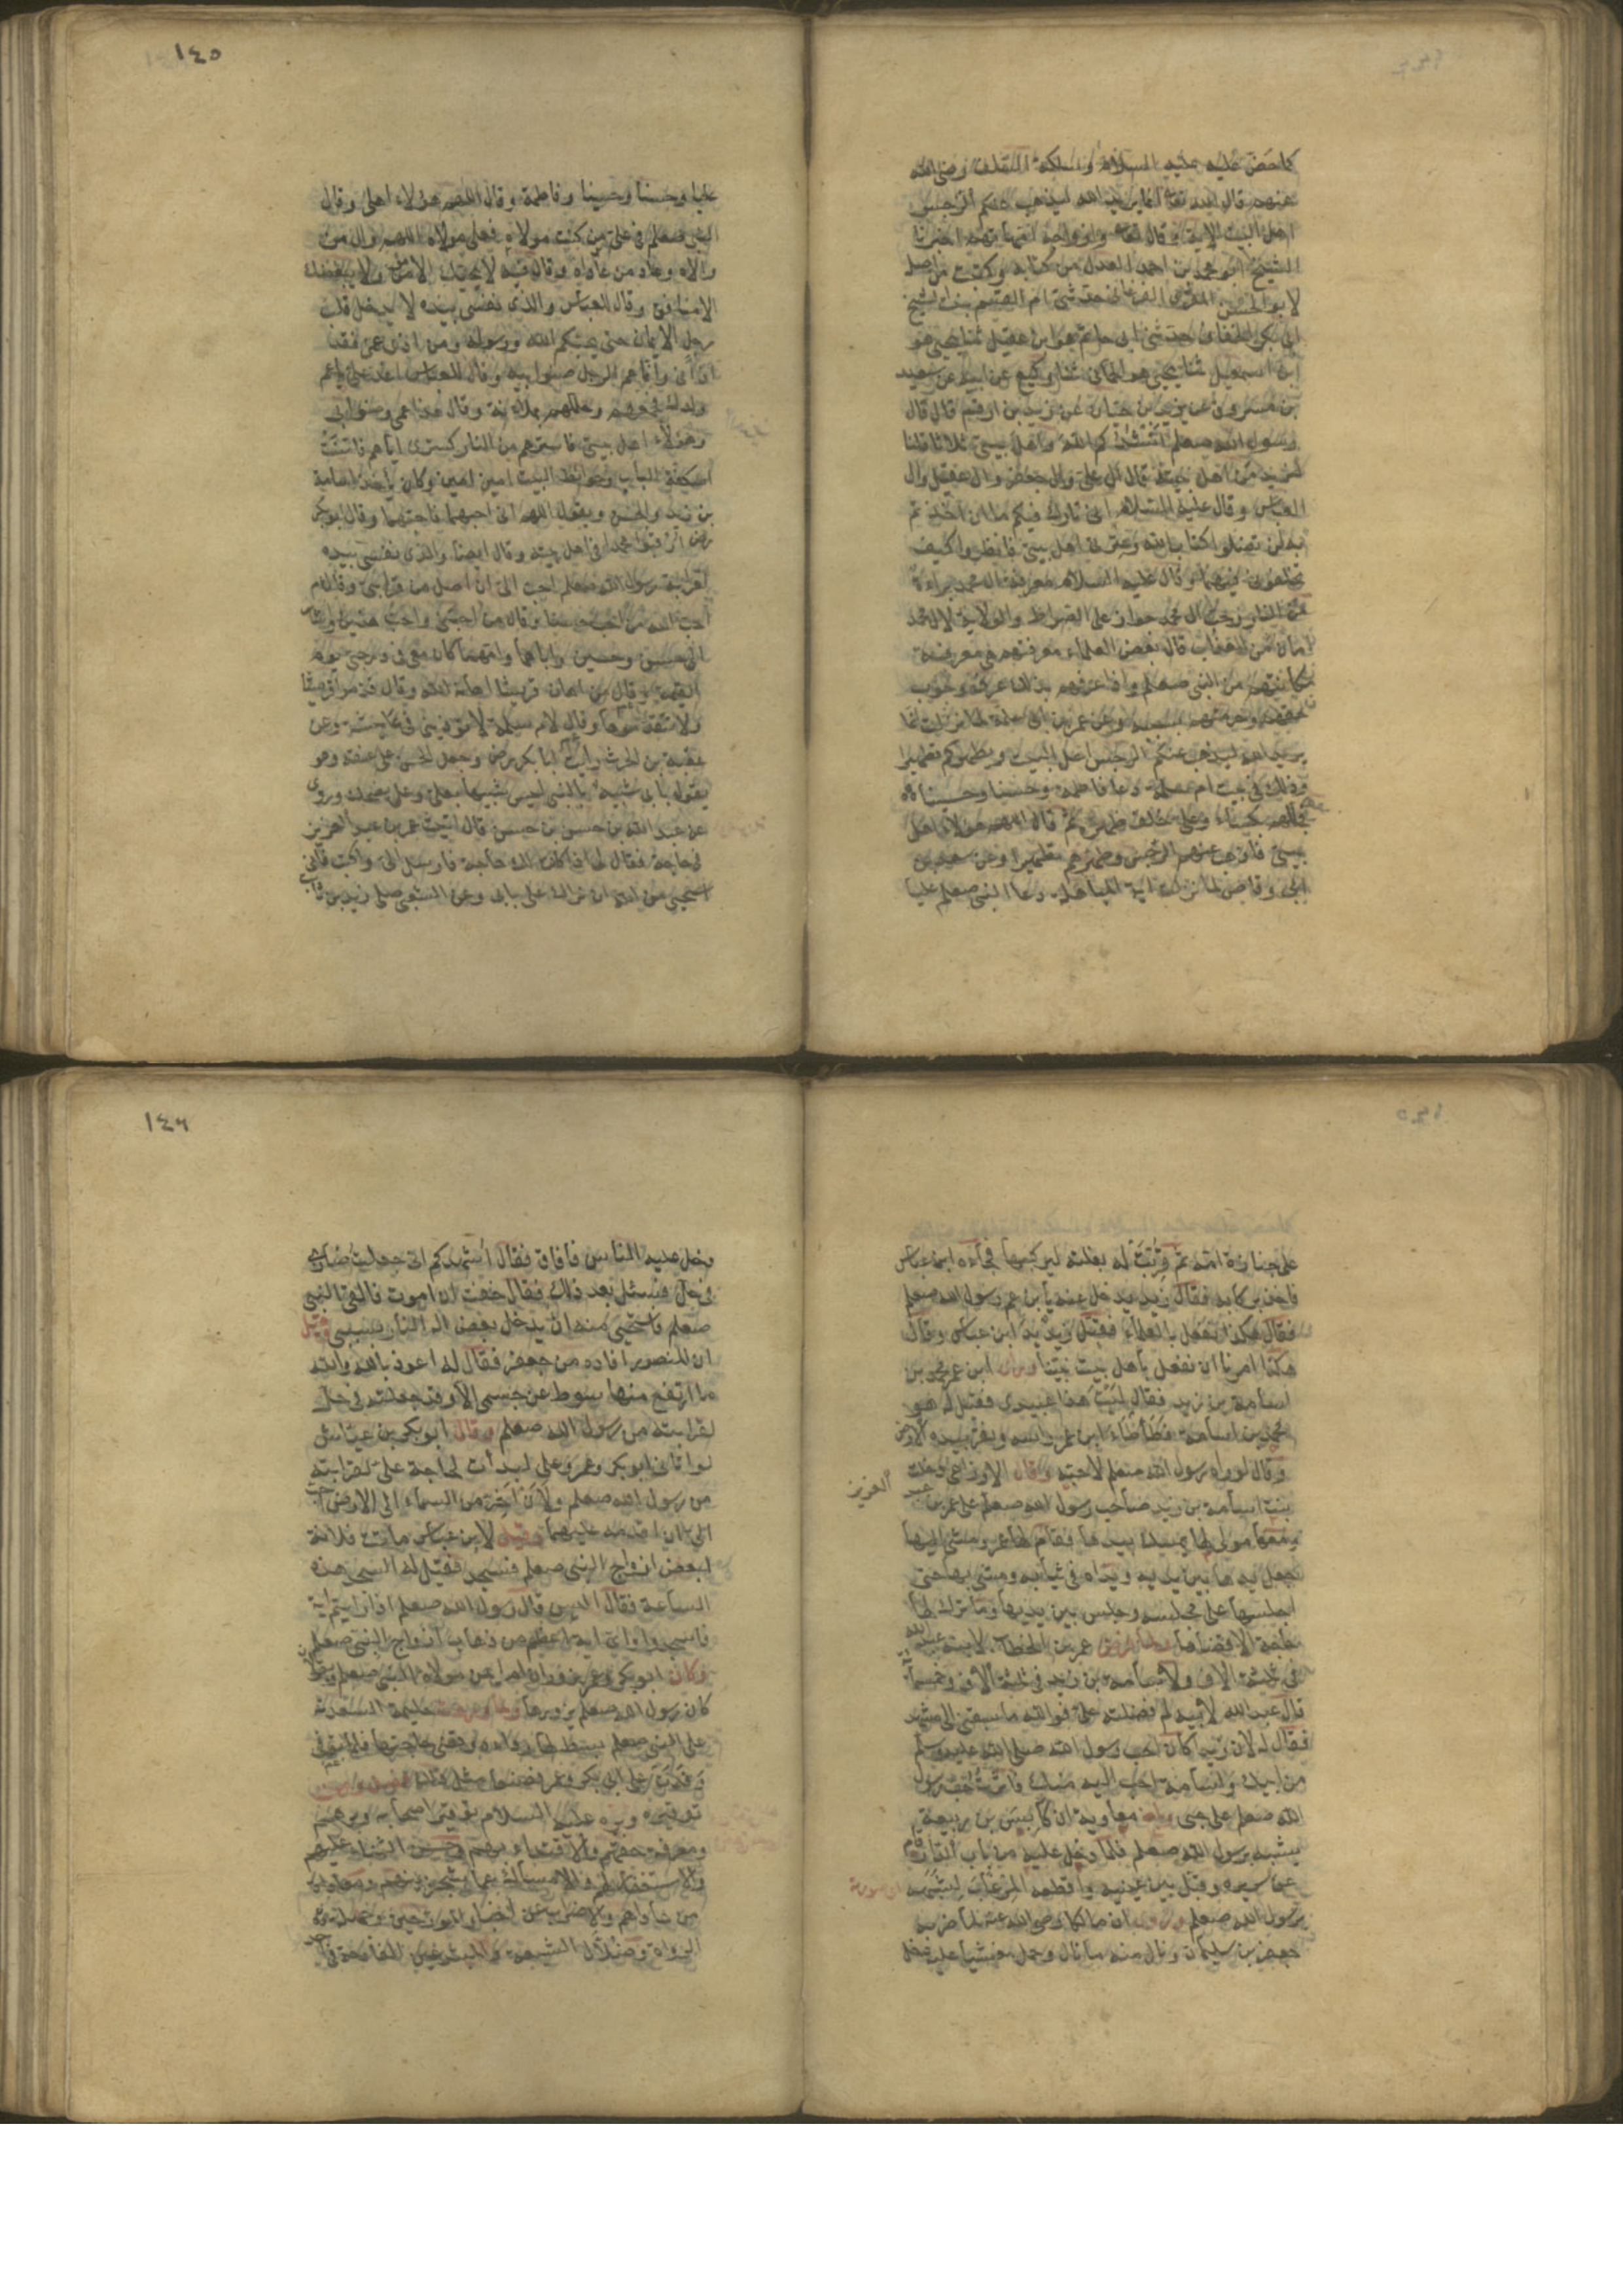 كما حض عليه عليه السلام وسلكه السلف رضي الله
عنهم قال الله تعا انما يريد الله ليذهب عنكم الرجس
اهل البيت الاية وقال تعا وازواجه امهاتهم اخبرنا
الشيخ ابو محمد بن احمد العدل من كتابه وكتبت من اصله
ابو الحسن المقرئ الفرغاني حدثتني ام القسم بنت الشيخ
ابي بكر الخفاف حدثني ابي حاتم هو ابن عقيل ثنا يحيى هو
ابن اسمعيل ثنا يحيى هو الحماني ثنا وكيع عن ابيه عن سعيد
بن مسروق عن يزيد بن حيان عن زيد بن ارقم قال قال
رسول الله صعلم انشدكم الله واهل بيتي ثلاثا قلنا
لزيد من اهل بيته قال ال علي وال جعفر وال عقيل وال
العباس وقال عليه السلام اني تارك فيكم ما ان اخذتم
به لن تضلوا كتاب الله وعترتي اهل بيتي فانظروا كيف
تخلفوني فيهما وقال عليه السلام معرفة ال محمد براءة
من النار وحب ال محمد جواز على الصراط والولاية لال محمد
امان من العذاب قال بعض العلماء معرفتهم هي معرفة
مكانهم من النبي صعلم واذا عرفهم بذلك عرف وجوب
حقهم وحرمتهم بسببه وعن عمر بن ابي سلمة لما نزلت انما
يريد الله ليذهب عنكم الرجس اهل البيت ويطهركم تطهيرا
وذلك في بيت ام سلمة دعا فاطمة وحسنا وحسينا
فجللهم بكساء وعلي خلف ظهره ثم قال اللهم هولاء اهل
بيتي فاذهب عنهم الرجس وطهرهم تطهيرا وعن سعد بن
ابي وقاص لما نزلت اية المباهلة دعا النبي صعلم عليا
١٤٥
عليا وحسنا وحسينا وفاطمة وقال اللهم هؤلاء اهلي وقال
النبي صعلم في علي من كنت مولاه فعلي مولاه اللهم وال من
والاه وعاد من عاداه وقال فيه لا يحبك الا مؤمن ولا يبغضك
الا منافق وقال للعباس والذي نفسي بيده لا يدخل قلب
رجل الايمان حتى يحبكم الله ورسوله ومن اذى عمي فقد
اذاني وانما عم الرجل صنو ابيه وقال للعباس اغد علي يا عم
وولدك فجمعهم وجللهم بملاءته وقال هذا عمي وصنو ابي
وهؤلاء اهل بيتي فاسترهم من النار كستري اياهم فامنت
اسكفة الباب وحوائط البيت امين امين وكان يأخذ اسامة
بن زيد والحسن ويقول اللهم اني احبهما فاحبهما وقال ابو بكر
رضه ارقبوا محمدا في اهل بيته وقال ايضا والذي نفسي بيده
لقرابة رسول الله صعلم احب الي ان اصل من قرابتي وقال عم
احب الله من احب حسينا وقال من احبني واحب هذين واشار
الى حسن وحسين واباهما وامهما كان معي في درجتي يوم
القيمة وقال من اهان قريشا اهانه الله وقال قدموا قريشا
ولا تقدموها وقال لام سلمة لا تؤذيني في عايشة وعن
عقبة بن الحرث رايت ابا بكر رضه وجعل الحسن على عنقه وهو
يقول بابي شبيه بالنبي ليس شبيها بعلي وعلي يضحك وروي
عن عبد الله بن حسن بن حسين قال اتيت عمر بن عبد العزيز
في حاجة فقال لي اذا كان لك حاجة فارسل الي واكتب فاني
استحيي من الله ان يراك على بابي وعن الشعبي صلى زيد بن ثابت
على جنازة امه ثم قربت له بغلته ليركبها فجاءه ابن عباس
فاخذ بركابه فقال زيد خل عنه يا بن عم رسول الله صعلم
فقال هكذا نفعل بالعلماء فقبل زيد يد ابن عباس وقال
هكذا امرنا ان نفعل باهل بيت نبينا ابن عمر محمد بن
اسامة بن زيد فقال ليت هذا عبيدي فقيل له هو
محمد بن اسامة فطأطأ ابن عمر راسه ونقر بيده الارض
وقال لو راه رسول الله صعلم لاحبه وقال الاوزاعي دخلت
بنت اسامة بن زيد صاحب رسول الله صعلم على عمر بن عبد العزيز
ومعها مولى لها يمسك بيدها فقام لها عمر ومشى اليها
فجعل يدها بين يديه ويداه في ثيابه ومشى بها حتى
اجلسها على مجلسه وجلس بين يديها وما ترك لها
حاجة الا قضاها ولما فرض عمر بن الخطاب لابنه عبد الله
في ثلثة الاف ولاسامة بن زيد في ثلثة الاف وخمسمائة
قال عبد الله لابيه لم فضلته علي فوالله ما سبقني الى مشهد
فقال له لان زيد كان احب رسول الله صلى الله عليه وسلم
من ابيك واسامة احب اليه منك فاثرت حب رسول
الله صعلم على حبي معاوية ان كابس بن ربيعة
يشبه برسول الله صعلم فلما دخل عليه من باب الدار قام
عن سريره وقبل بين عينيه واقطعه المرغاب لشبهه
برسول الله صعلم ان مالكا رضي الله عنه لما ضربه
جعفر بن سليمان ونال منه ما نال وحمل مغشيا عليه فدخل
١٤٦
دخل عليه الناس فافاق فقال اشهدكم اني جعلت ضاربي
في حل فسئل بعد ذلك فقال خفت ان اموت فالقى النبي
صعلم فاستحيي منه ان يدخل بعض اله النار بسببي وقيل
ان المنصور اقاده من جعفر فقال له اعوذ بالله والله
ما ارتفع منها سوط عن جسمي الا وقد جعلته في حل
لقرابته من رسول الله صعلم وقال ابو بكر بن عياش
لو اتاني ابو بكر وعمر وعلي لبدأت لحاجة علي لقرابته
من رسول الله صعلم ولان اخر من السماء الى الارض احب
الي ان اقدمه عليهما وقيل لابن عباس ماتت فلانة
لبعض ازواج النبي صعلم فسجد فقيل له اتسجد هذه
الساعة فقال اليس قال رسول الله صعلم اذا رايتم اية
فاسجدوا واي اية اعظم من ذهاب ازواج النبي صعلم
وكان ابو بكر وعمر يزوران ام ايمن مولاة النبي صعلم ويقولان
كان رسول الله صعلم يزورها حليمة السعدية
على النبي صعلم بسط لها رداءه وقضى حاجتها فلما توفي
وفدت على ابي بكر وعمر فصنعا مثل ذلك
توقيره وبره عليه السلام توقير اصحابه وبرهم
ومعرفة حقهم والاقتداء بهم وحسن الثناء عليهم
والاستغفار لهم والامساك عما شجر بينهم ومعاداة
من عاداهم والاضراب عن اخبار المؤرخين وجهلة
الرواة وضلال الشيعة والمبتدعين القادحة في احد